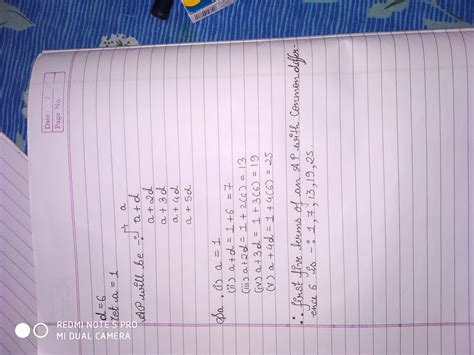 Date: / /
Page No.
d=6
Let a = 1
AP will be -: a
a+d
a+2d
a+3d
a+4d
a+5d
So, (i) a = 1
(ii) a+d = 1+6 = 7
(iii) a+2d = 1+2(6) = 13
(iv) a+3d = 1+3(6) = 19
(v) a+4d = 1+4(6) = 25
∴ first five terms of an AP with common differ-
ence 6 is -: 1, 7, 13, 19, 25.
REDMI NOTE 5 PRO
MI DUAL CAMERA